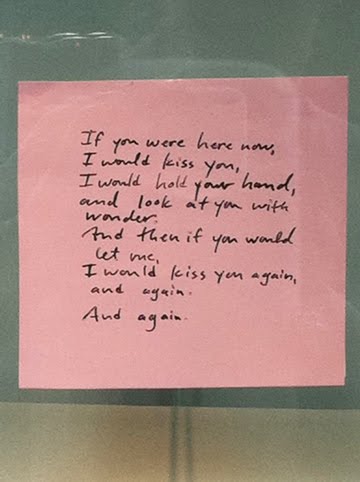 If you were here now,
I would kiss you,
I would hold your hand,
and look at you with
wonder.
And then if you would
let me,
I would kiss you again,
and again.
And again.